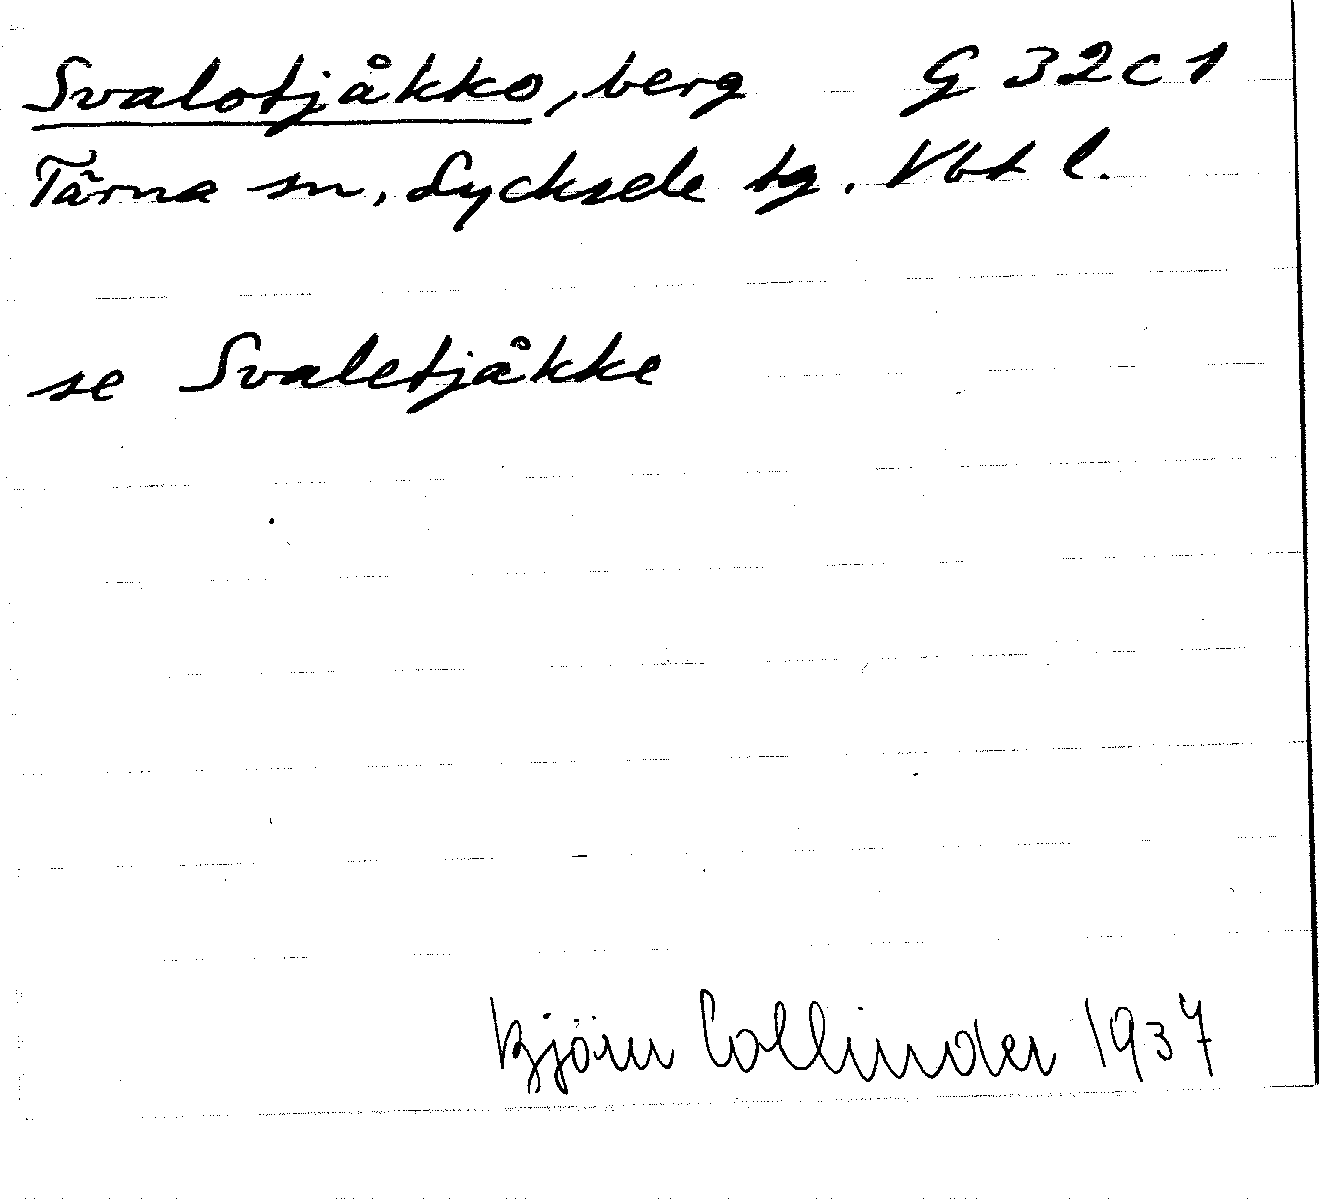 Svalotjåkko, berg G 32 c 1
Tärna sn, Lycksele tg. Vbt l.
se Svaletjåkke
Björn Collinder 1937